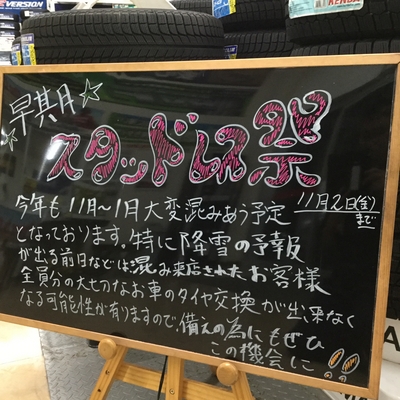 VERSION
KENDA
早期☆
スタッドレス祭
今年も11月〜1月大変混みあう予定
11月2日(金)
まで
となっております。特に降雪の予報
が出る前日などは混み来店されたお客様
全員分の大切なお車のタイヤ交換が出来なく
なる可能性が有りますので、備えの為にもぜひ
この機会に!!